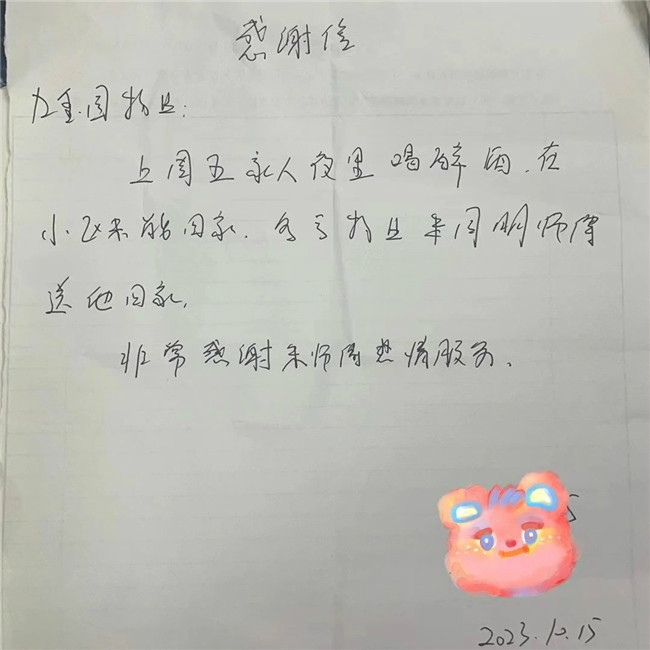 感谢信
物业:
上周五家人夜里喝醉酒.在
小区未能回家.多亏物业朱同明师傅
送他回家.
非常感谢朱师傅热情服务.
2023.10.15